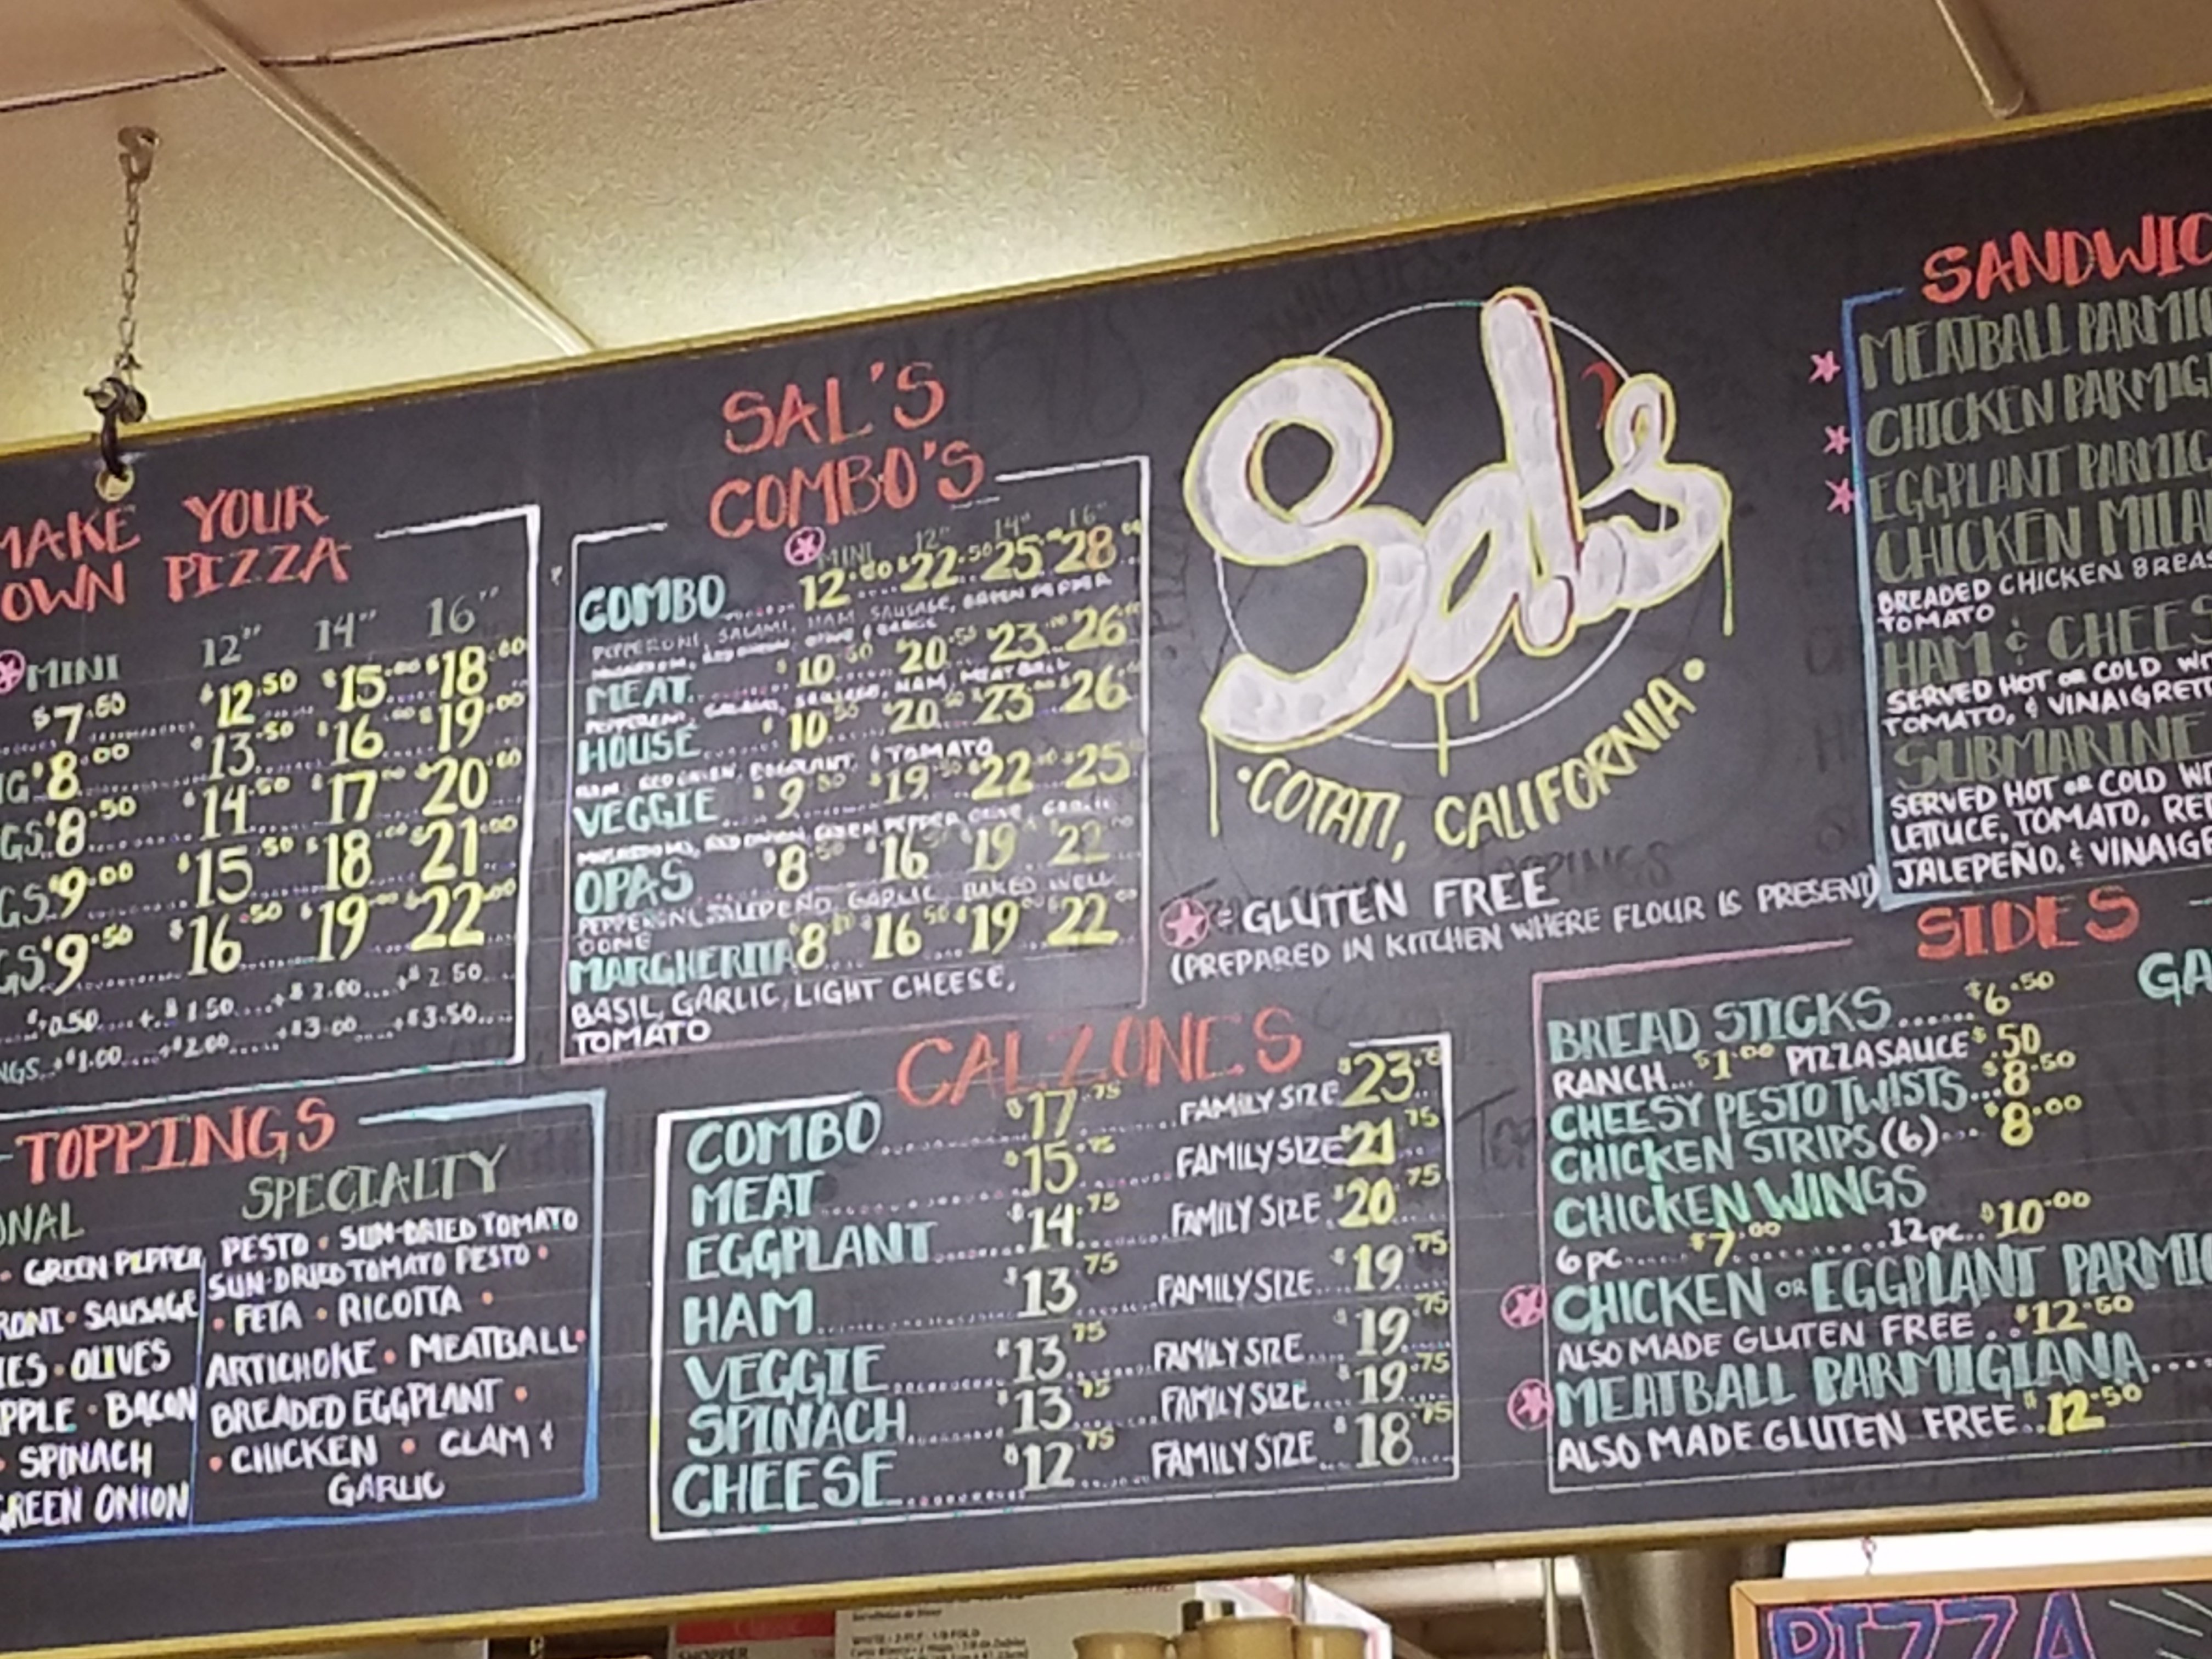 MAKE YOUR
OWN PIZZA
MINI 12" 14" 16"
$7.50 $12.50 $15.00 $18.00
$8.00 $13.50 $16.00 $19.00
$8.50 $14.50 $17.00 $20.00
$9.00 $15.50 $18.00 $21.00
$9.50 $16.50 $19.00 $22.00
$0.50....+.$1.50....+$2.00....+$2.50
+$1.00....+$2.00.....+$3.00....+$3.50....
TOPPINGS
SPECIALTY
GREEN PEPPER
SAUSAGE
OLIVES
BACON
SPINACH
GREEN ONION
PESTO • SUN-DRIED TOMATO
SUN-DRIED TOMATO PESTO •
• FETA • RICOTTA •
ARTICHOKE • MEATBALL •
BREADED EGGPLANT •
• CHICKEN • CLAM &
GARLIC
SAL'S
COMBO'S
MINI 12" 14" 16"
COMBO 12 $22.50 25 28
PEPPERONI, SALAMI, HAM, SAUSAGE, GREEN PEPPER
MEAT $10 20 23 26
PEPPERONI, SALAMI, SAUSAGE, HAM, MEATBALL
HOUSE $10 20 23 26
EGGPLANT, & TOMATO
VEGGIE $9 19 22 25
MUSHROOMS, RED ONION, GREEN PEPPER, OLIVE, GARLIC
OPAS $8 16 19 22
PEPPERONI, JALEPEÑO, GARLIC, BAKED WELL
DONE
MARGHERITA 8 16.50 19 22
BASIL, GARLIC, LIGHT CHEESE,
TOMATO
Sal's
• COTATI, CALIFORNIA •
= GLUTEN FREE
(PREPARED IN KITCHEN WHERE FLOUR IS PRESENT)
CALZONES
COMBO $17.75 FAMILY SIZE $23
MEAT $15.75 FAMILY SIZE $21.75
EGGPLANT $14.75 FAMILY SIZE $20.75
HAM $13.75 FAMILY SIZE $19.75
VEGGIE $13.75 FAMILY SIZE $19.75
SPINACH $13.75 FAMILY SIZE $19.75
CHEESE $12.75 FAMILY SIZE $18.75
MEATBALL PARMI
CHICKEN PARMIG
EGGPLANT PARMIG
CHICKEN MILA
BREADED CHICKEN BREAS
TOMATO
HAM & CHEES
SERVED HOT OR COLD WI
TOMATO, & VINAIGRETT
SUBMARINE
SERVED HOT OR COLD WI
LETTUCE, TOMATO, RE
JALEPEÑO, & VINAIG
SIDES
BREAD STICKS......$6.50
RANCH...$1.00 PIZZA SAUCE $.50
CHEESY PESTO TWISTS...$8.50
CHICKEN STRIPS (6)....$8.00
CHICKEN WINGS
6 pc.....$7.00.........12 pc..$10.00
CHICKEN OR EGGPLANT PARMIG
ALSO MADE GLUTEN FREE..$12.50
MEATBALL PARMIGIANA....
ALSO MADE GLUTEN FREE..$12.50
GA
PIZZA